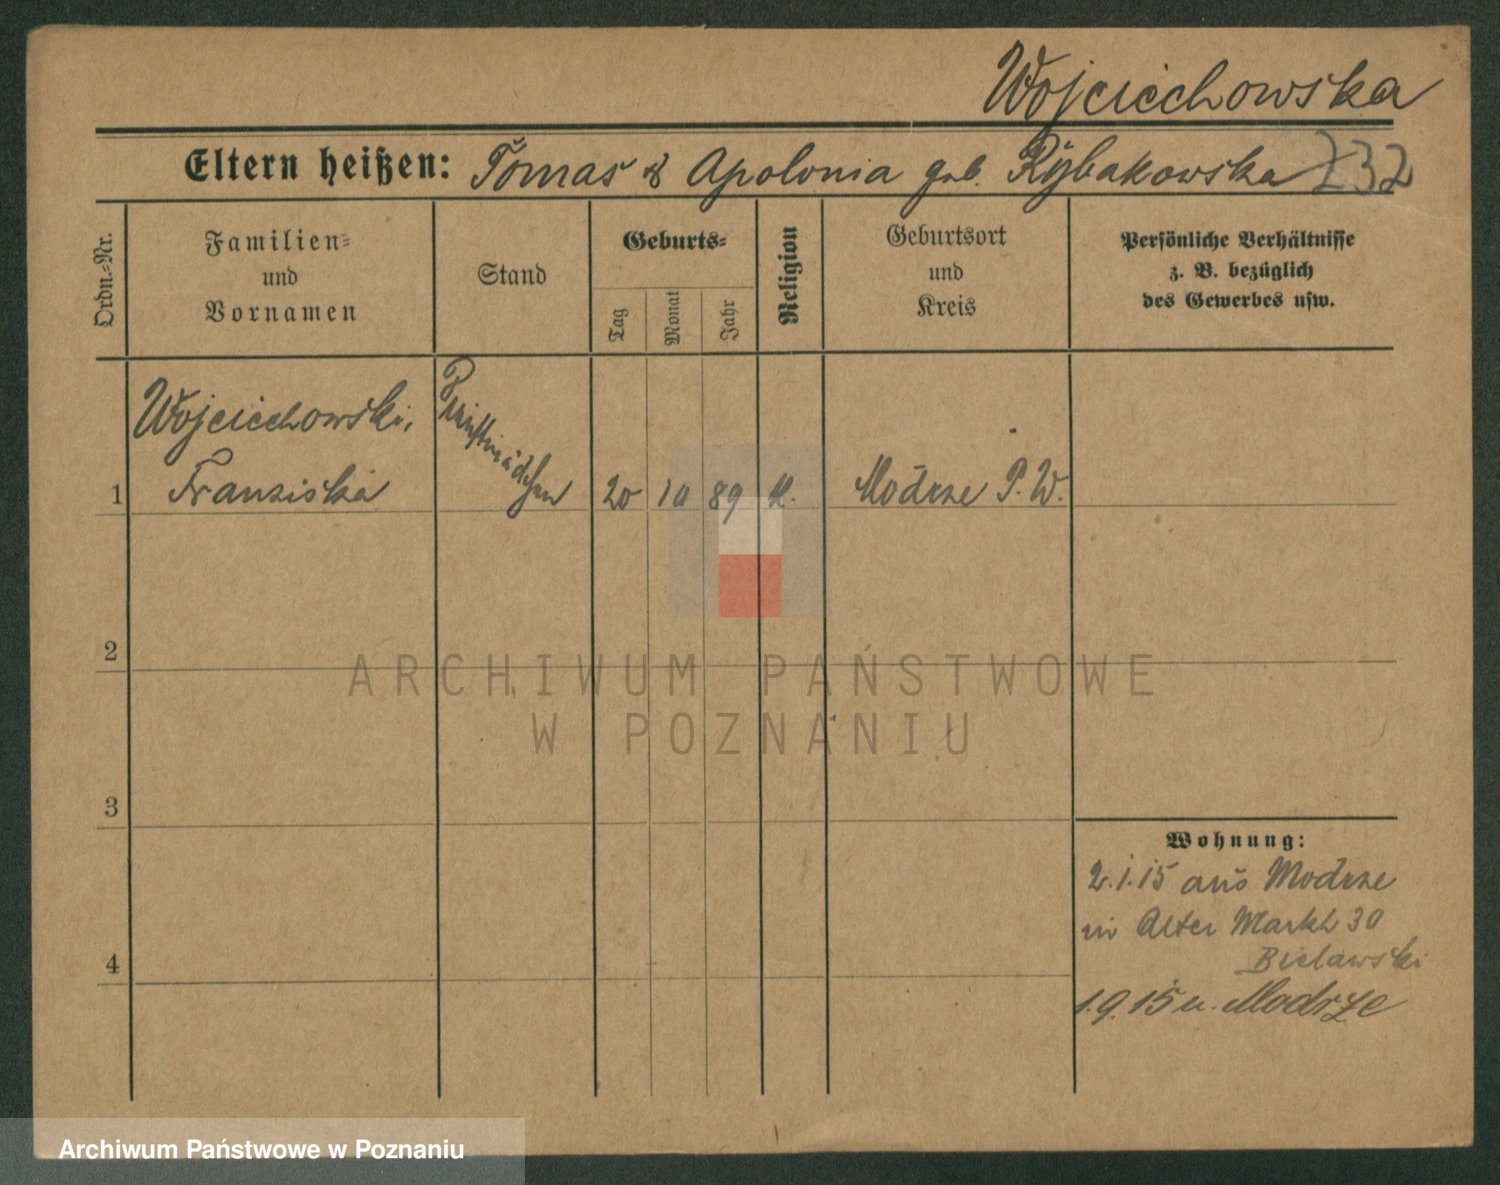 Wojciechowska
Eltern heißen: Tomas & Apolonia geb. Rybakowska 232
Ordn.-Nr.
Familien-
und
Vornamen
Stand
Geburts-
Tag
Monat
Jahr
Religion
Geburtsort
und
Kreis
Persönliche Verhältnisse
z. B. bezüglich
des Gewerbes usw.
Wojciechowski,
1 Franziska Dienstmädchen 20 10 89 K. Modrze P. W.
2
3
4
Wohnung:
2.1.15 aus Modrze
in Alter Markt 30
Bielawski
1.9.15 n. Modrze
ARCHIWUM PAŃSTWOWE
W POZNANIU
Archiwum Państwowe w Poznaniu